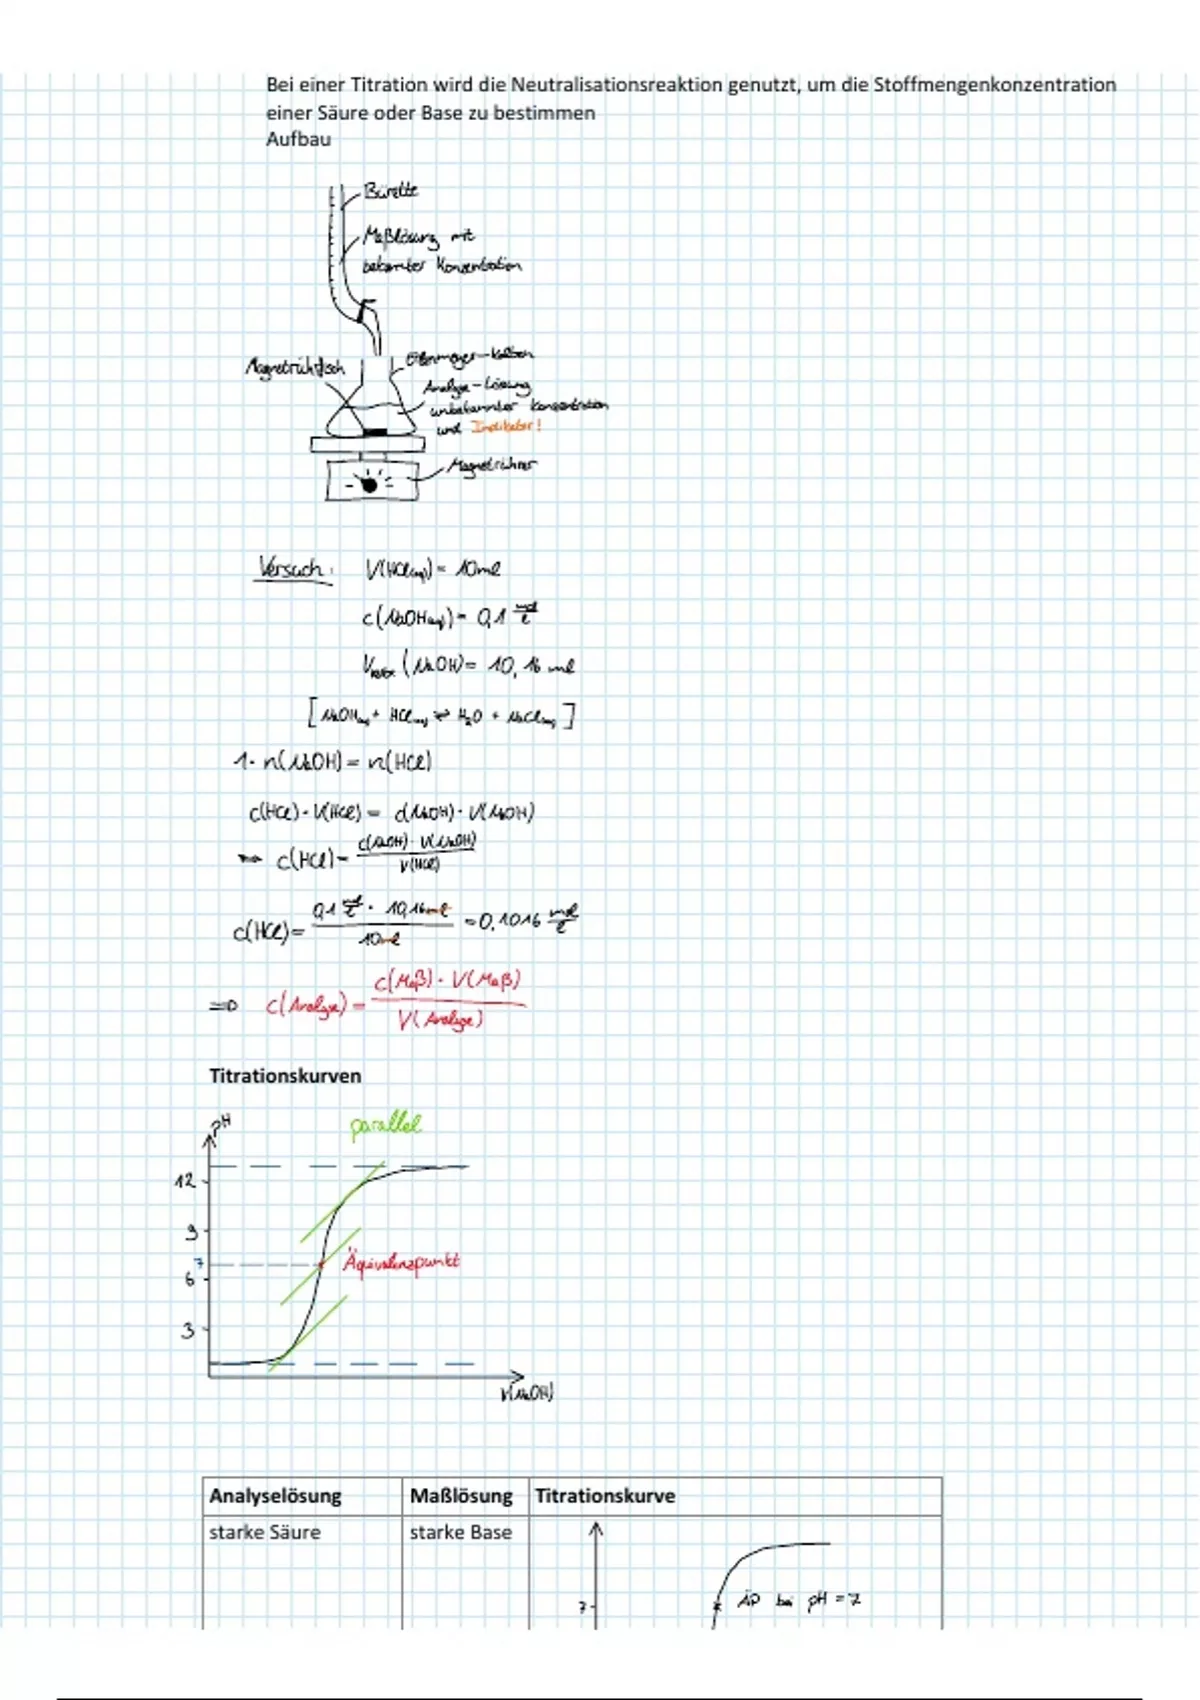 Bei einer Titration wird die Neutralisationsreaktion genutzt, um die Stoffmengenkonzentration
einer Säure oder Base zu bestimmen
Aufbau
Bürette
Maßlösung mit
bekannter Konzentration
Magnetrührfisch
Erlenmeyer-Kolben
Analyse-Lösung
unbekannter Konzentration
und Indikator!
Magnetrührer
Versuch: V(HCl(aq)) = 10ml
c(NaOH(aq)) = 0,1 mol/l
(NaOH) = 10,16 ml
[NaOH(aq) + HCl(aq) ⇌ H₂O + NaCl(aq)]
1· n(NaOH) = n(HCl)
c(HCl) · V(HCl) = c(NaOH) · V(NaOH)
c(HCl) = c(NaOH) · V(NaOH) / V(HCl)
c(HCl) = 0,1 mol/l · 10,16ml / 10ml = 0,1016 mol/l
⇒ c(Analyse) = c(Maß) · V(Maß) / V(Analyse)
Titrationskurven
pH
parallel
12
9
7
Äquivalenzpunkt
6
3
V(NaOH)
Analyselösung Maßlösung Titrationskurve
starke Säure starke Base
7 ÄP bei pH = 7